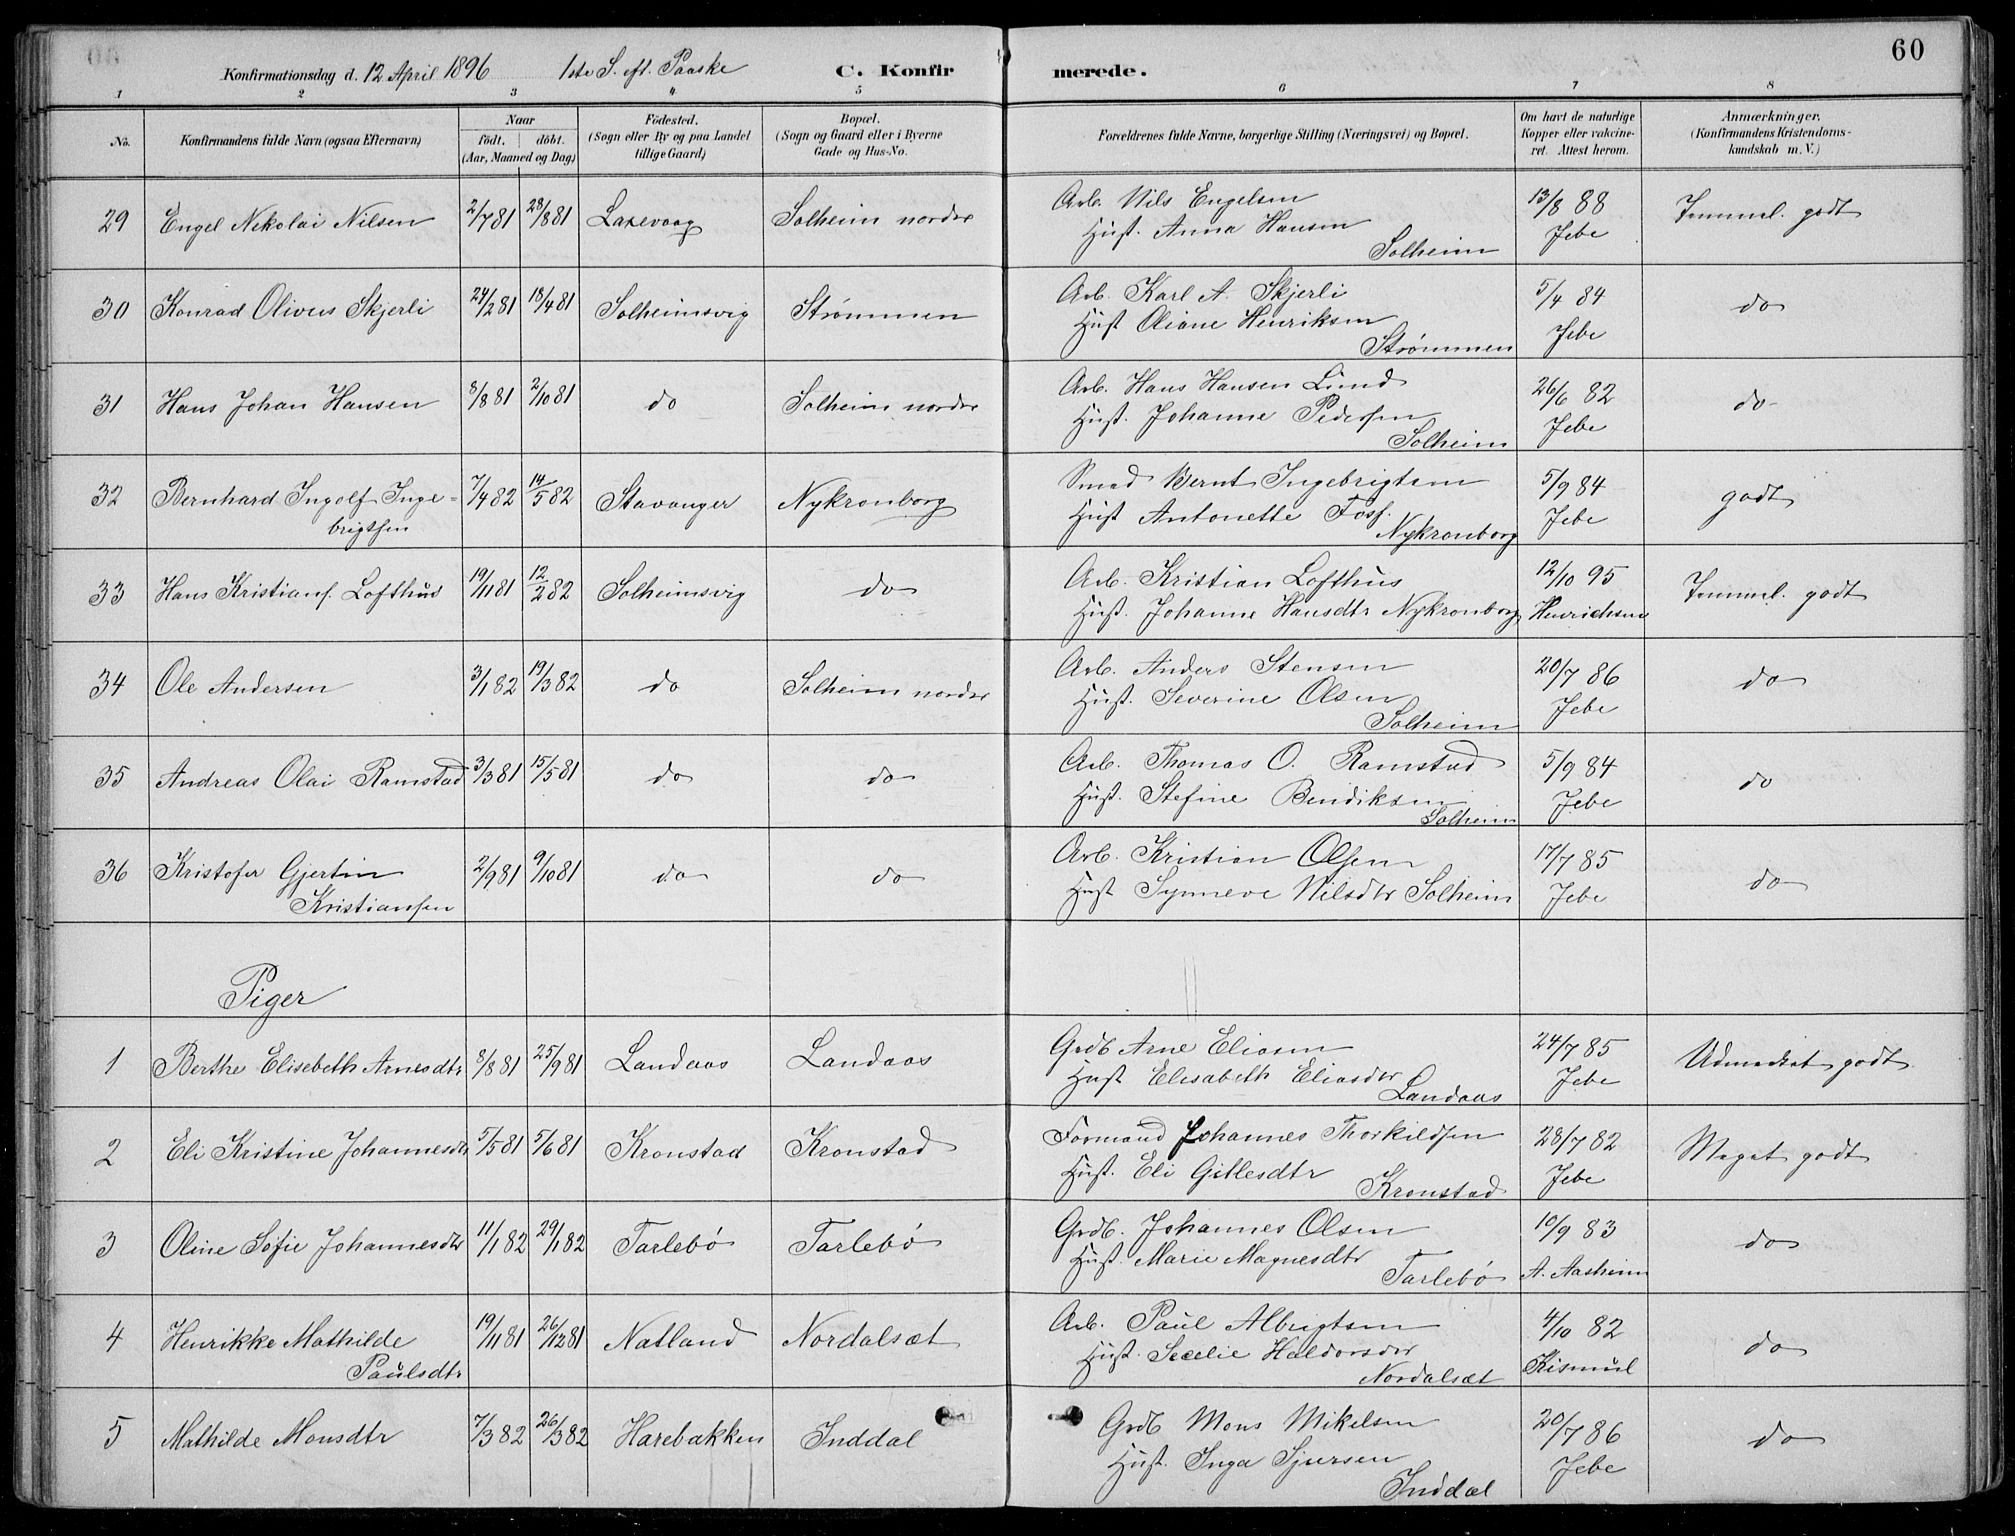 60
Konfirmationsdag d. 12 April 1896 1ste S. eft. Paaske C. Konfirmerede.
1 2 3 4 5 6 7 8
No. Konfirmandens fulde Navn (ogsaa Efternavn) Naar födt. döbt. (Aar, Maaned og Dag) Födested. (Sogn eller By og paa Landet tillige Gaard) Bopæl. (Sogn og Gaard eller i Byerne Gade og Hus-No. Forældrenes fulde Navne, borgerlige Stilling (Næringsvei) og Bopæl. Om havt de naturlige Kopper eller vakcineret. Attest herom. Anmærkninger. (Konfirmandens Kristendomskundskab m. V.)
29 Engel Nikolai Nilsen 2/7 81 28/8 81 Laxevaag Solheim nordre Arb. Nils Engelsen 13/8 88 Temmel. godt
Hust. Anna Hansen Jebe
Solheim
30 Konrad Oliver Skjerli 24/2 81 18/4 81 Solheimsvig Strømmen Arb. Karl A. Skjerli 5/4 84 do
Hust Oliane Henriksen Jebe
Strømmen
31 Hans Johan Hansen 8/8 81 2/10 81 do Solheim nordre Arb. Hans Hansen Lund 26/6 82 do
Hust. Johanne Pedersen Jebe
Solheim
32 Bernhard Ingolf Inge- 7/4 82 14/5 82 Stavanger Nykronborg Smed Bernt Ingebrigtsen 5/9 84 godt
brigtsen Hust Antonette Foss. Jebe
Nykronborg
33 Hans Kristians. Lofthus 19/11 81 12/2 82 Solheimsvig do Arb. Kristian Lofthus 12/10 95 Temmel. godt
Hust. Johanne Hansdtr Nykronborg Henrichsen
34 Ole Andersen 3/1 82 19/3 82 do Solheim nordre Arb. Anders Stensen 20/7 86 do
Hust. Severine Olsen Jebe
Solheim
35 Andreas Olai Ramstad 3/3 81 15/5 81 do do Arb. Thomas O. Ramstad 5/9 84 do
Hust. Stefine Bendiksen Jebe
Solheim
36 Kristofer Gjertin 2/9 81 9/10 81 do do Arb. Kristian Olsen 17/7 85 do
Kristiansen Hust Synneve Nilsdtr Solheim Jebe
Piger
1 Berthe Elisebeth Arnesdtr 8/8 81 25/9 81 Landaas Landaas Grdb Arne Eliasen 24/7 85 Udmerket godt
Hust Elisabeth Eliasdtr Jebe
Landaas
2 Eli Kristine Johannesdtr 5/5 81 5/6 81 Kronstad Kronstad Formand Johannes Thorkildsen 28/7 82 Meget godt
Hust. Eli Gitlesdtr Jebe
Kronstad
3 Oline Sofie Johannesdtr 11/1 82 29/1 82 Tarlebø Tarlebø Grdb. Johannes Olsen 10/9 83 do
Hust. Marie Magnesdtr A. Aasheim
Tarlebø
4 Henrikke Mathilde 19/11 81 26/12 81 Natland Nordalsæt Arb. Paul Albrigtsen 4/10 82 do
Paulsdtr Hust. Secelie Haldorsdtr Kismul
Nordalsæt
5 Mathilde Monsdtr 7/3 82 26/3 82 Harebakken Inddal Grdb Mons Mikelsen 20/7 86 do
Hust. Inga Sjursen Jebe
Inddal